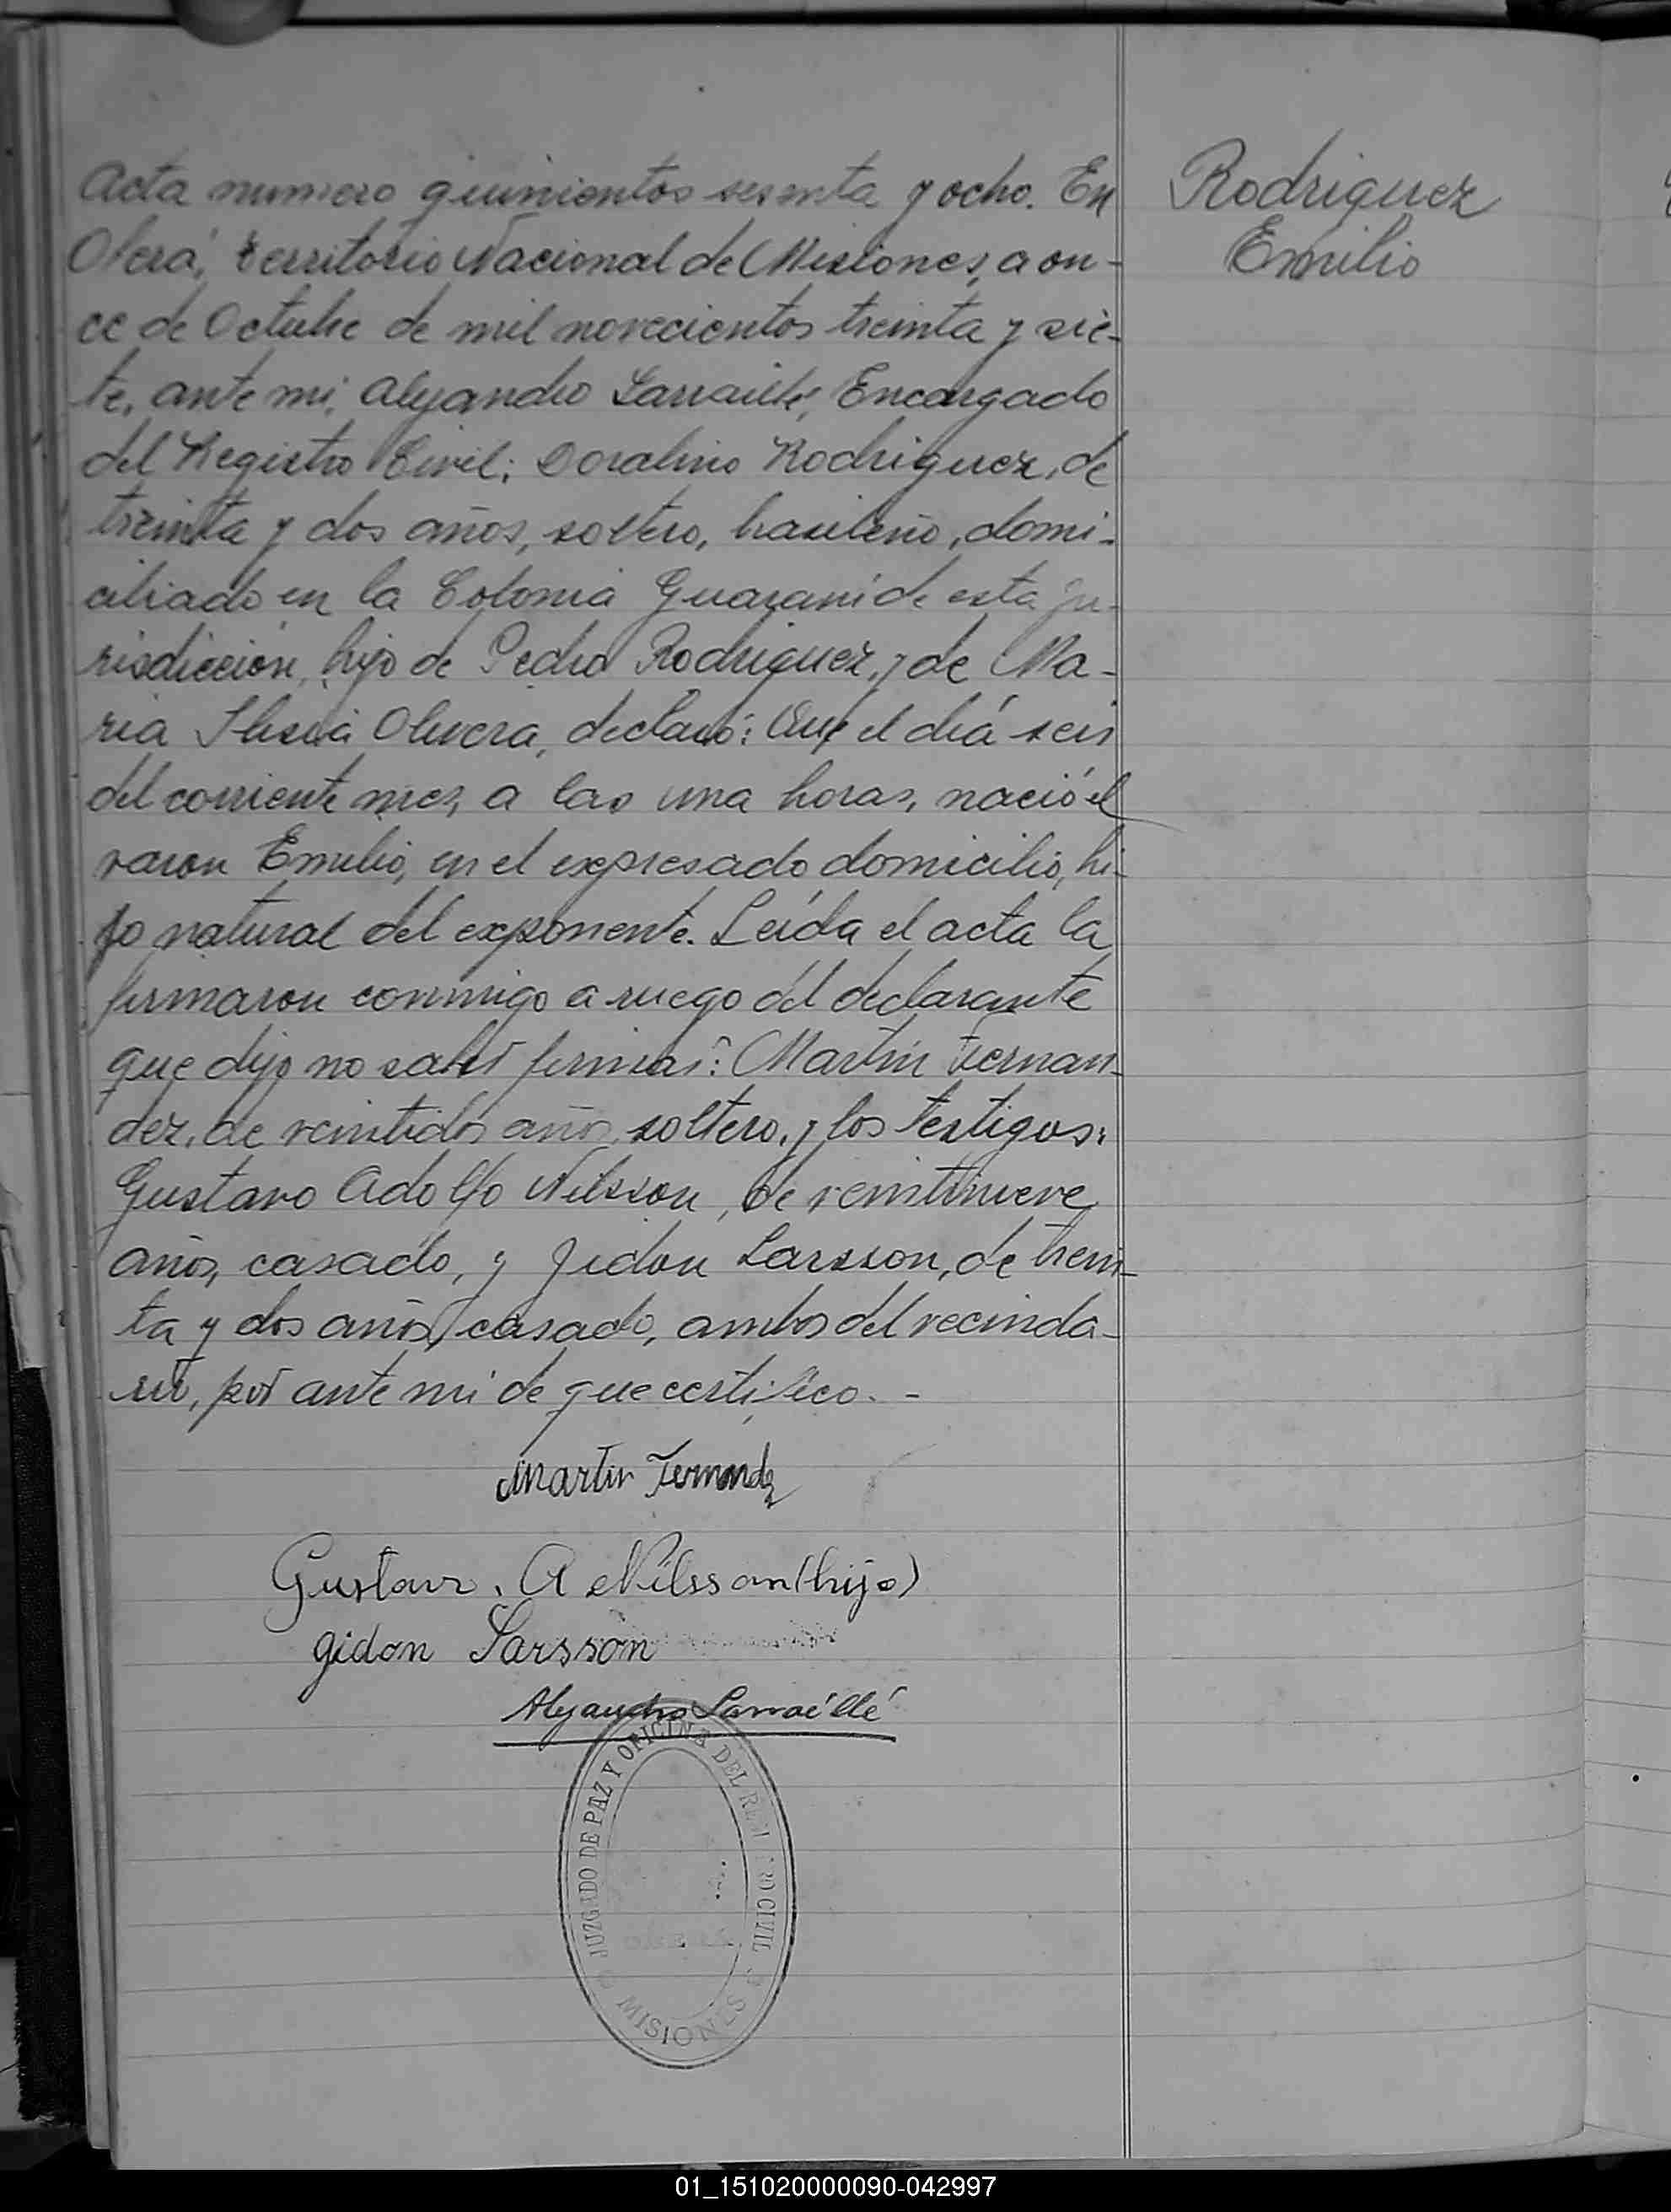 Acta numero quinientos sesenta y ocho. En
Oberá, territorio Nacional de Misiones, a on-
ce de Octubre de mil novecientos treinta y sie-
te, ante mi, Alejandro Larraillé, Encargado
del Registro Civil; Doralino Rodriguez, de
treinta y dos años, soltero, brasileño, domi-
ciliado en la Colonia Guaraní de esta ju-
risdicción, hijo de Pedro Rodriguez, y de Ma-
ria Olivera, declaró: Que el diá seis
del corriente mes, a las una horas, nació el
varon Emilio, en el expresado domicilio, hi-
jo natural del exponente. Leída el acta la
firmaron conmigo a ruego del declarante
que dijo no saber firmar: Martín Fernan-
dez, de veintidos años, soltero, y los testigos:
Gustavo Adolfo Nilsson, de veintinueve
años, casado, y Jidon Larsson, de trein-
ta y dos años, casado, ambos del vecinda-
rio, por ante mi de que certifico. -
Rodriguez
Emilio
Martin Fernandez
Gustavo. A Nilsson (hijo)
gidon Larsson
Alejandro Larraíllé
JUZGADO DE PAZ Y OFICINA DEL REGISTRO CIVIL
MISIONES
01_151020000090-042997